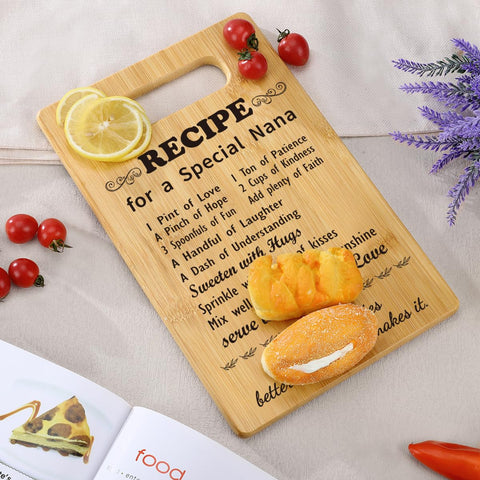 RECIPE
for a Special Nana
1 Pint of Love 1 Ton of Patience
A Pinch of Hope 2 Cups of Kindness
3 Spoonfuls of Fun Add plenty of Faith
A Handful of Laughter
A Dash of Understanding
Sweeten with Hugs
Sprinkle of kisses
Mix well sunshine
serve Love
makes it.
bette
food